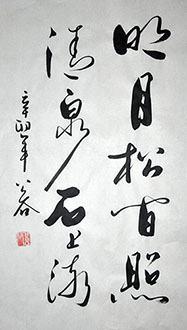 明月松间照
清泉石上流
辛卯年